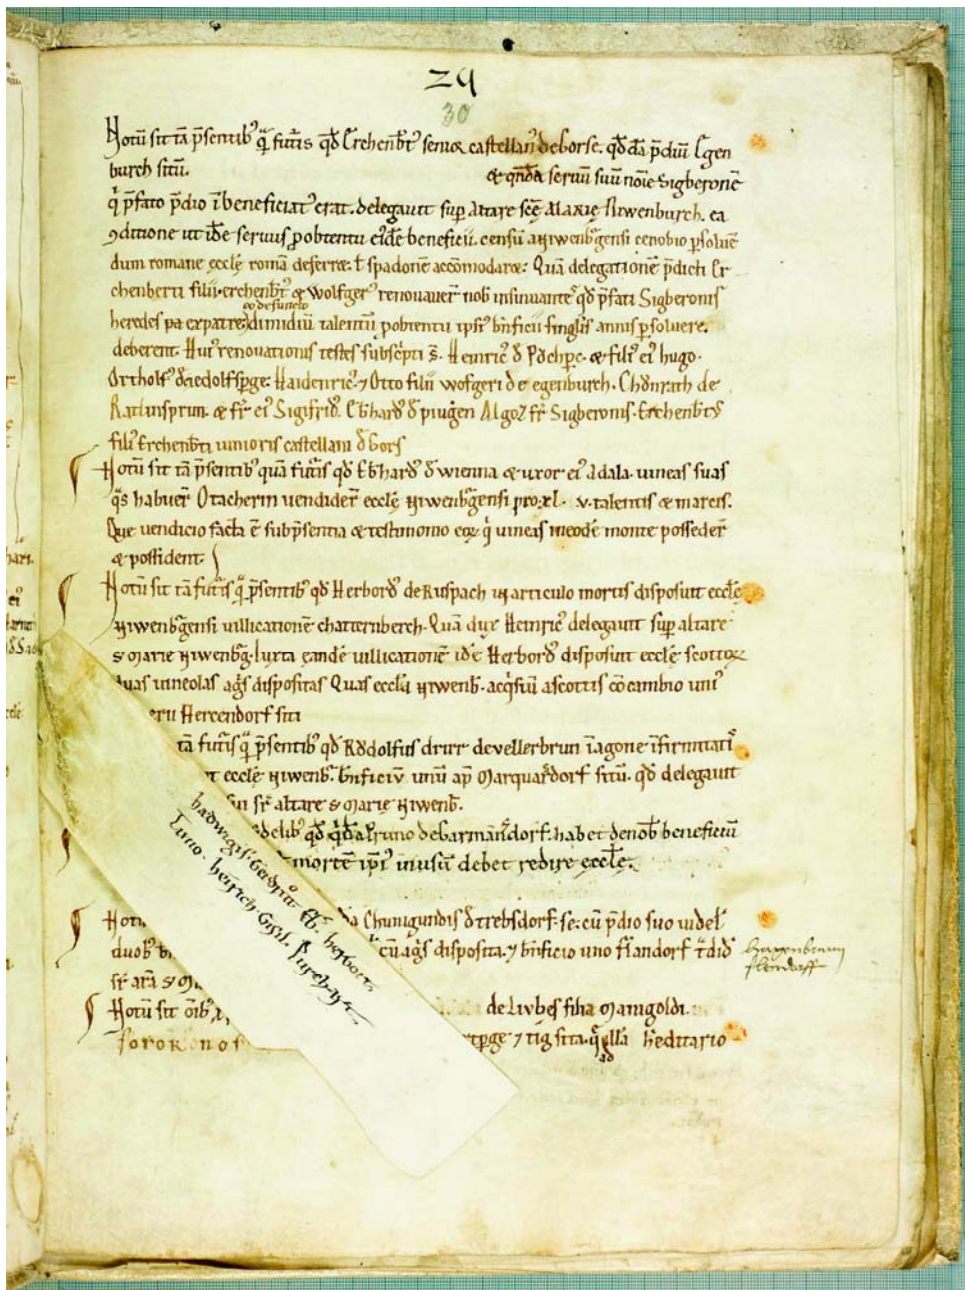 29
30
Notū sit tā p̄sentib' q̄ futīs qd̄ Erchenb̄t' senior castellan' de Gorse. qd̄dā p̄diū Egen
burch sitū. & qndā seruū suū nōie Sigberonē
q̇ p̄fato p̄dio ībeneficiat' erat. delegauit sup altare scē MARIE Niwenburch. ea
9ditione ut ide seruus p obtentu eidē beneficii. censū a Niwenb'gensi cenobio psoluē
dum romane eccle romā deferræ. t̄ spadonē accōmodaræ. Quā delegationē p̄dicti Er
chenberti filii. erchenb̄t' & Wolfger' renouauer̄ nob insinuante' qd̄ p̄fati Sigberonis
heredes pacxpatre defuncto dimidiū talentū p obtentu ipsi' b̄nficii singlis annis psoluere.
deberent. Hui' renouationis testes subscpti s̄. Heinric' đ Pǒchperc. & fili' ei' hugo.
Ortholf' đ riedolfsperge. Haidenric'. 7 Otto filii wofgeri de egenburch. Chǒnrath de
Ratlinsprun. & fr̄ ei' Sigifrid'. Ekhard' đ piugen Algoz fr̄ Sigberonis. Erchenb̄t'
fili' Erchenb̄ti iunioris castellani đ Gors
Notū sit tā p̄sentib' quā futīs qd̄ Ekhard' đ wienna & uxor ei' Adala. uineas suas
q̄s habuer̄ Otacherin uendider̄ eccle Niwenb'gensi pro. xl. v. talentis & marcis.
Que uendicio facta ē sub p̄sentia & testimonio eoꝝ q̇ uineas in eodē monte posseder̄
& possident.
Notū sit tā futīs q̄ p̄sentib' qd̄ Herbord' de Ruspach in articulo mortis disposuit eccle
Niwenb'gensi uillicationē chatternberch. Quā dux Heinric' delegauit sup altare
S Marie Niwenb'g. Iuxta eandē uillicationē idē Herbord' disposuit eccle scottoꝝ
duas uineolas ag̃s dispositas Quas eccla Niwenb'. acq̇siuit a scottis cōcambio uni'
erii Hercendorf siti
tā futīs q̄ p̄sentib' qd̄ Rǒdolfus drirr de vellerbrun ī agone īfirmitati'
t eccle Niwenb'. b̄nficiū unū ap̄ Marquardorf sitū. qd̄ delegauit
sui sr̄ altare S Marie Niwenb'.
delib' qd̄ q̇dā pruno de Garmandorf. habet de nob beneficiū
mortē ipsi' in usū debet redire eccle.
Notū da Chunigundis đ trebsdorf. se. cū p̄dio suo uidel
duob' cū ag̃s disposita. 7 b̄nficio uno flandorf t̄did'
sr̄ arā S M
Notū sit oīb' de Liubes filia Manigoldi.
perge 7 tig sita. q̄ ad illā hereditario
soror nos
hadwigis. Gerdrut. Ek. herbort.
Tuno. heinrich. Gisil.
Hagenbrunn
flendorff